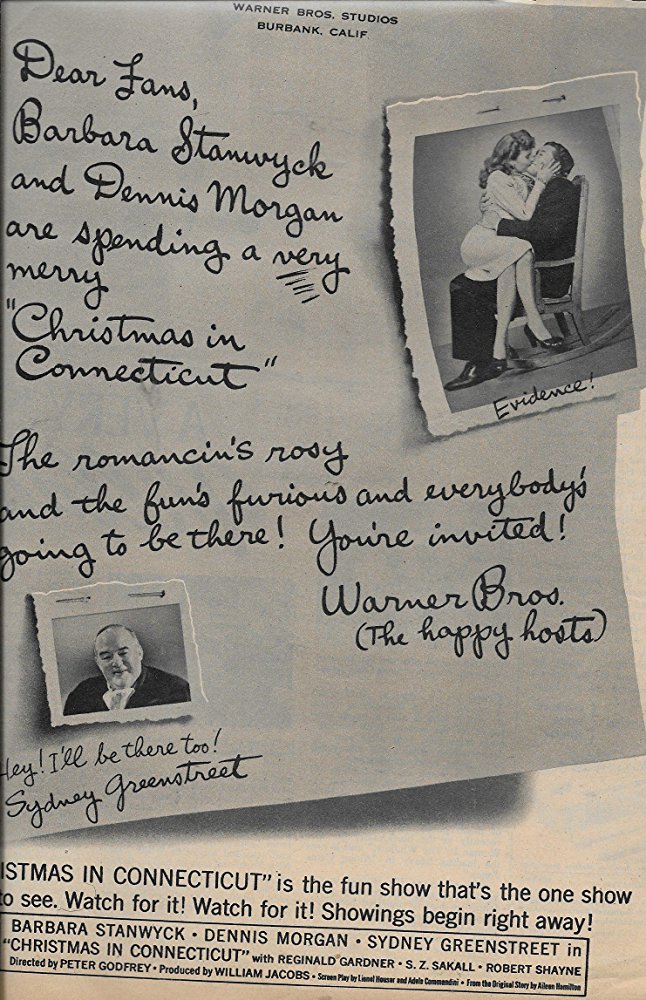 WARNER BROS. STUDIOS
BURBANK, CALIF.
Dear Fans,
Barbara Stanwyck
and Dennis Morgan
are spending a very
merry
"Christmas in
Connecticut"
Evidence!
The romancin's rosy
and the fun's furious and everybody's
going to be there! You're invited!
Warner Bros.
(The happy hosts)
Hey! I'll be there too!
Sydney Greenstreet
ISTMAS IN CONNECTICUT" is the fun show that's the one show
to see. Watch for it! Watch for it! Showings begin right away!
BARBARA STANWYCK • DENNIS MORGAN • SYDNEY GREENSTREET in
"CHRISTMAS IN CONNECTICUT" with REGINALD GARDNER • S. Z. SAKALL • ROBERT SHAYNE
Directed by PETER GODFREY • Produced by WILLIAM JACOBS • Screen Play by Lionel Houser and Adele Commandini • From the Original Story by Aileen Hamilton